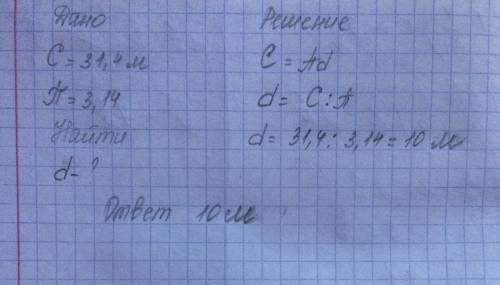 Дано
C = 31,4 м
π = 3,14
Найти
d - ?
Решение
C = πd
d = C : π
d = 31,4 : 3,14 = 10 м
Ответ 10 м